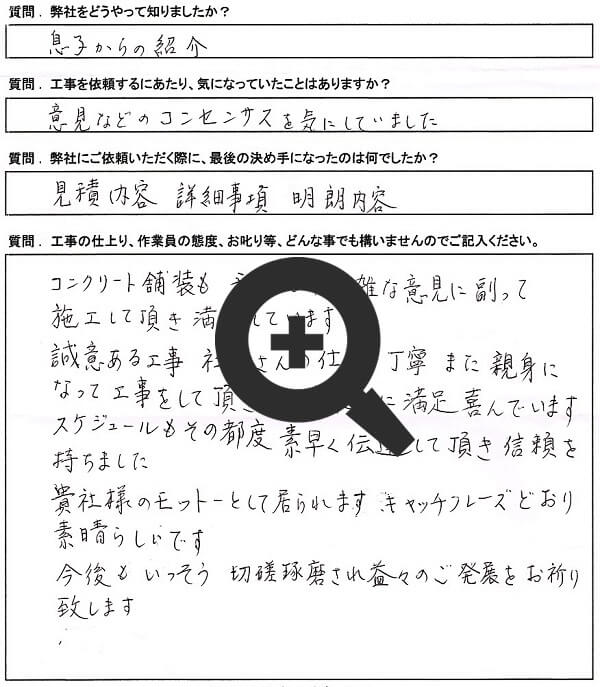 質問．弊社をどうやって知りましたか？
息子からの紹介
質問．工事を依頼するにあたり、気になっていたことはありますか？
意見などのコンセンサスを気にしていました
質問．弊社にご依頼いただく際に、最後の決め手になったのは何でしたか？
見積内容 詳細事項 明朗内容
質問．工事の仕上り、作業員の態度、お叱り等、どんな事でも構いませんのでご記入ください。
コンクリート舗装も 雑な意見に副って
施工して頂き 満 しています
誠意ある工事 社 さんの仕 丁寧 また 親身に
なって工事をして頂き に 満足 喜んでいます
スケジュールもその都度 素早く伝達して頂き 信頼を
持ちました
貴社様のモットーとして居られます キャッチフレーズどおり
素晴らしいです
今後も いっそう 切磋琢磨され益々のご発展をお祈り
致します